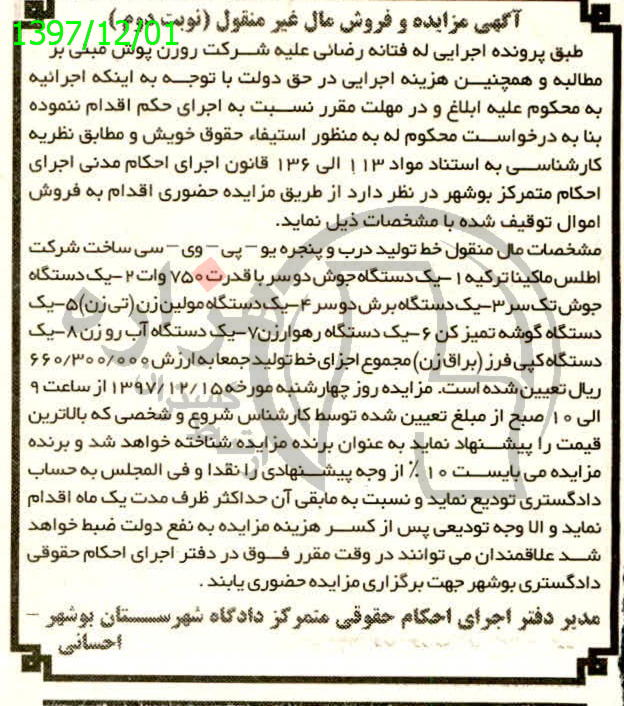 آگهی مزایده و فروش مال غیر منقول (نوبت دوم)
1397/12/01
طبق پرونده اجرایی له فتانه رضائی علیه شرکت روزن پوش مبنی بر
مطالبه و همچنین هزینه اجرایی در حق دولت با توجه به اینکه اجرائیه
به محکوم علیه ابلاغ و در مهلت مقرر نسبت به اجرای حکم اقدام ننموده
بنا به درخواست محکوم له به منظور استیفاء حقوق خویش و مطابق نظریه
کارشناسی به استناد مواد ۱۱۳ الی ۱۳۶ قانون اجرای احکام مدنی اجرای
احکام متمرکز بوشهر در نظر دارد از طریق مزایده حضوری اقدام به فروش
اموال توقیف شده با مشخصات ذیل نماید.
مشخصات مال منقول خط تولید درب و پنجره یو - پی - وی - سی ساخت شرکت
اطلس ماکینا ترکیه ۱-یک دستگاه جوش دو سر با قدرت ۷۵۰ وات ۲-یک دستگاه
جوش تک سر ۳-یک دستگاه برش دو سر ۴-یک دستگاه مولین زن (تی زن) ۵-یک
دستگاه گوشه تمیز کن ۶-یک دستگاه رهوار زن ۷-یک دستگاه آب رو زن ۸-یک
دستگاه کپی فرز (براق زن) مجموع اجزای خط تولید جمعا به ارزش ۶۶۰/۳۰۰/۰۰۰
ریال تعیین شده است. مزایده روز چهارشنبه مورخه ۱۳۹۷/۱۲/۱۵ از ساعت ۹
الی ۱۰ صبح از مبلغ تعیین شده توسط کارشناس شروع و شخصی که بالاترین
قیمت را پیشنهاد نماید به عنوان برنده مزایده شناخته خواهد شد و برنده
مزایده می بایست ۱۰ ٪ از وجه پیشنهادی را نقدا و فی المجلس به حساب
دادگستری تودیع نماید و نسبت به مابقی آن حداکثر ظرف مدت یک ماه اقدام
نماید و الا وجه تودیعی پس از کسر هزینه مزایده به نفع دولت ضبط خواهد
شد علاقمندان می توانند در وقت مقرر فوق در دفتر اجرای احکام حقوقی
دادگستری بوشهر جهت برگزاری مزایده حضوری یابند.
مدیر دفتر اجرای احکام حقوقی متمرکز دادگاه شهرستان بوشهر -
احسانی